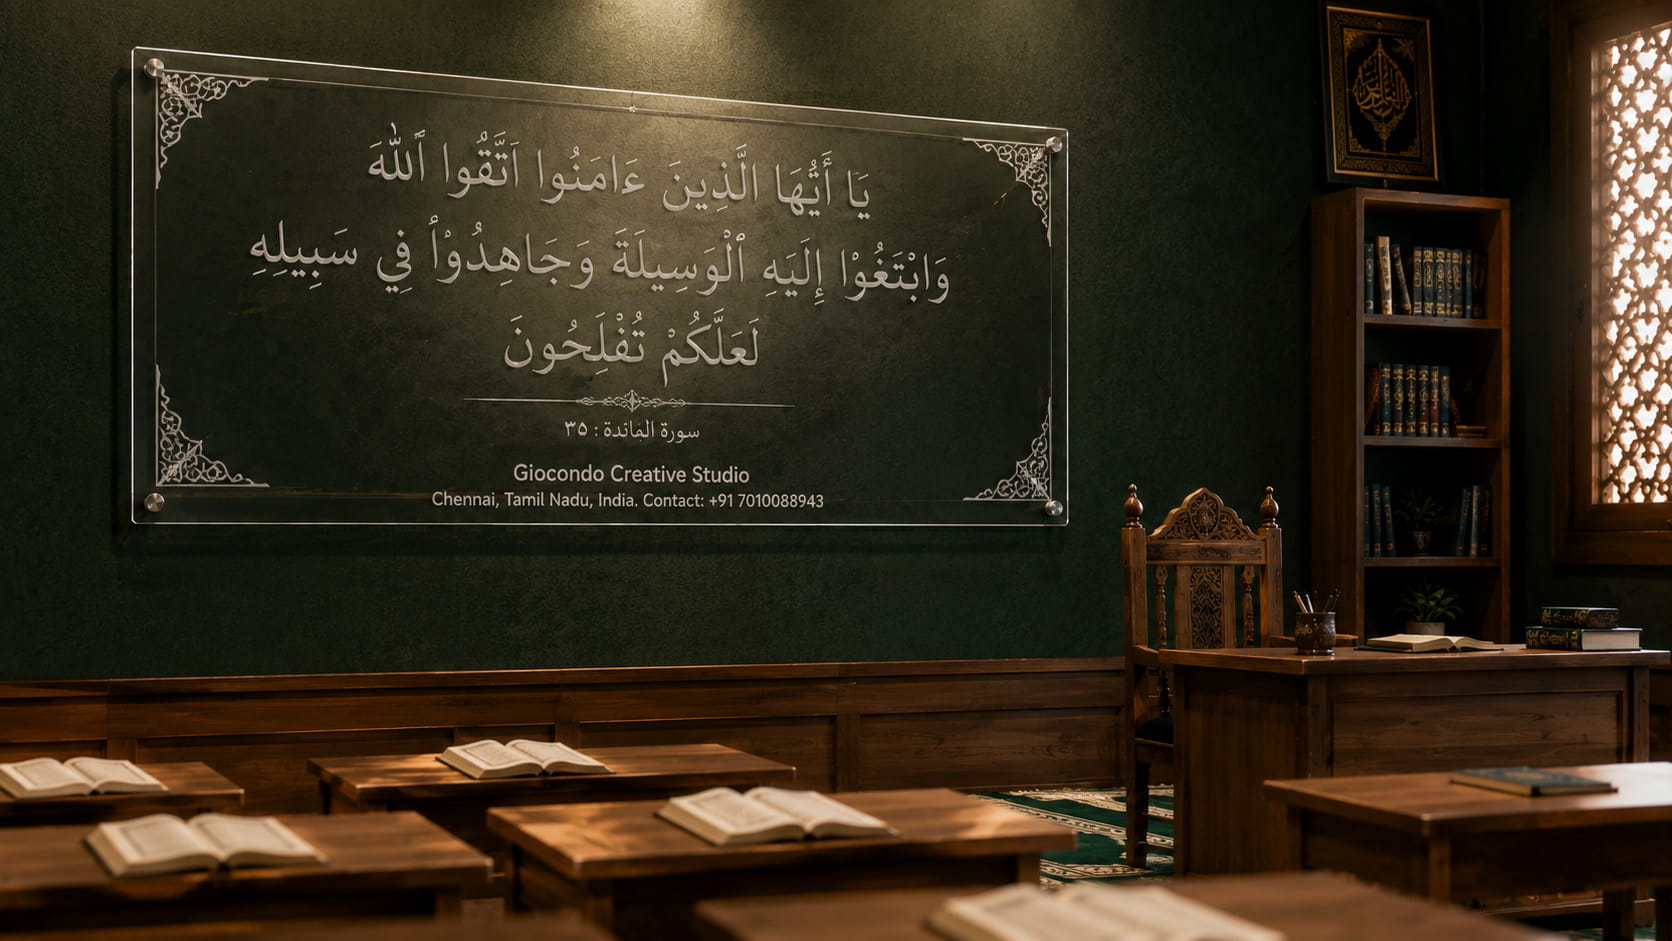 يَا أَيُّهَا الَّذِينَ ءَامَنُوا اَتَّقُوا ٱللَّهَ
وَابْتَغُوْا إِلَيْهِ ٱلْوَسِيلَةَ وَجَاهِدُوْا فِي سَبِيلِهِ
لَعَلَّكُمْ تُفْلِحُونَ
سورة المائدة : ٣٥
Giocondo Creative Studio
Chennai, Tamil Nadu, India. Contact: +91 7010088943